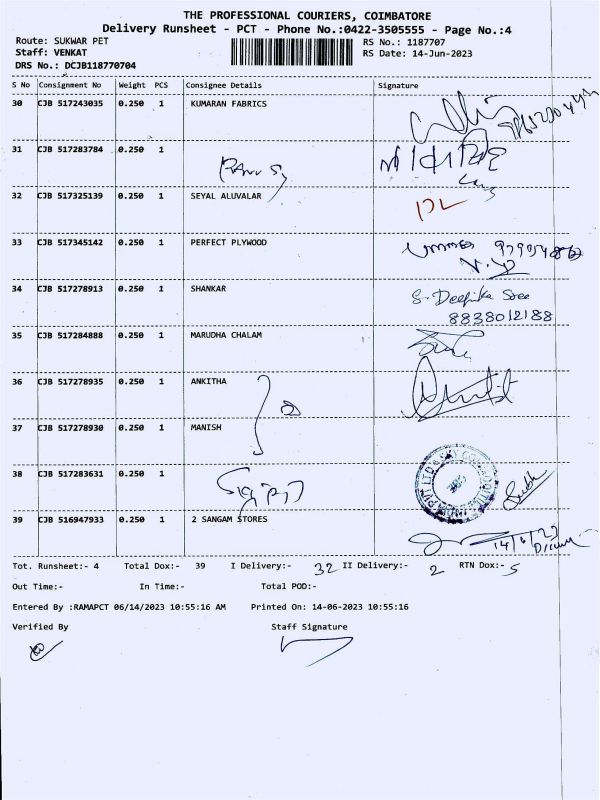 THE PROFESSIONAL COURIERS, COIMBATORE
Delivery Runsheet - PCT - Phone No.:0422-3505555 - Page No.:4
Route: SUKWAR PET RS No.: 1187707
Staff: VENKAT RS Date: 14-Jun-2023
DRS No.: DCJB118770704
S No Consignment No Weight PCS Consignee Details Signature
30 CJB 517243035 0.250 1 KUMARAN FABRICS
31 CJB 517283784 0.250 1
32 CJB 517325139 0.250 1 SEYAL ALUVALAR
33 CJB 517345142 0.250 1 PERFECT PLYWOOD
34 CJB 517278913 0.250 1 SHANKAR
S. Deepika Sree
8838012188
35 CJB 517284888 0.250 1 MARUDHA CHALAM
36 CJB 517278935 0.250 1 ANKITHA
37 CJB 517278930 0.250 1 MANISH
38 CJB 517283631 0.250 1
39 CJB 516947933 0.250 1 2 SANGAM STORES
14/6/23
Tot. Runsheet:- 4 Total Dox:- 39 I Delivery:- 32 II Delivery:- 2 RTN Dox:- 5
Out Time:- In Time:- Total POD:-
Entered By :RAMAPCT 06/14/2023 10:55:16 AM Printed On: 14-06-2023 10:55:16
Verified By Staff Signature